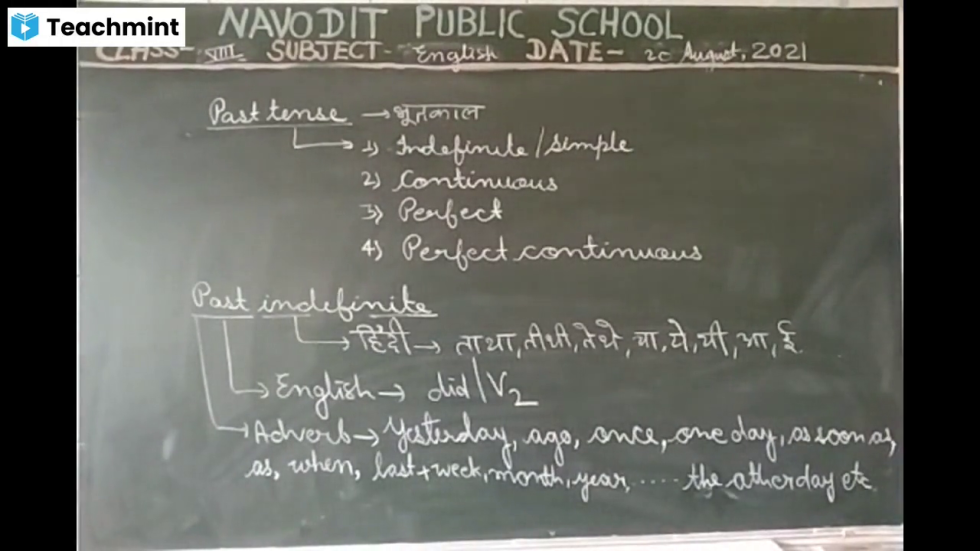 Teachmint
NAVODIT PUBLIC SCHOOL
CLASS- VIII SUBJECT- English DATE- 20 August, 2021
Past tense → भूतकाल
1) Indefinite/simple
2) Continuous
3) Perfect
4) Perfect continuous
Past indefinite
→ हिंदी → ता था, ती थी, ते थे, या, ये, यी, आ, ई.
→ English → did/V2
→ Adverb → Yesterday, ago, once, one day, as soon as,
as, when, last + week, month, year, ..... the atherday etc.